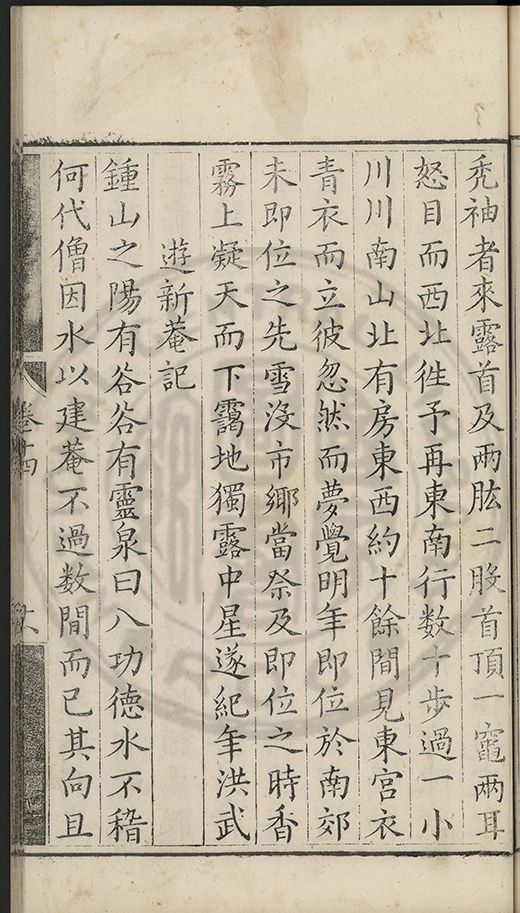 禿袖者來露首及兩肱二股首頂一竈兩耳
怒目而西北徃予再東南行数十步過一小
川川南山北有房東西約十餘間見東宮衣
青衣而立彼忽然而夢覺明年即位於南郊
未即位之先雪没市鄉當祭及即位之時香
霧上凝天而下靄地獨露中星遂紀年洪武
遊新菴記
鍾山之陽有谷谷有靈泉曰八功徳水不稽
何代僧因水以建菴不過数間而已其向且
卷十四